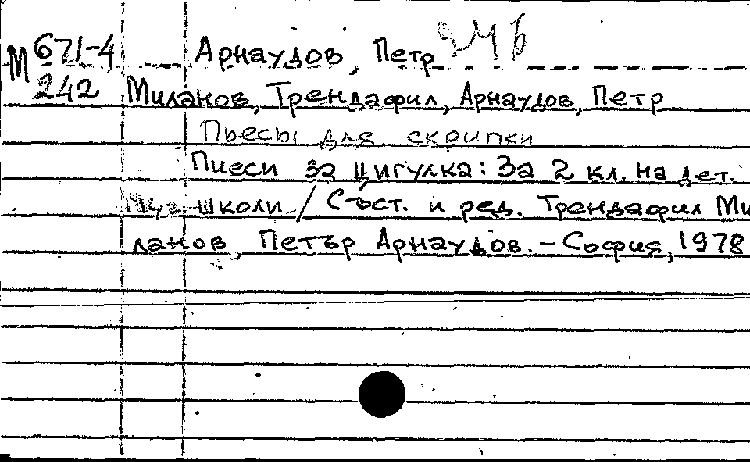 М 671-4 Арнаудов, Петр
242 Миланов, Трендафил, Арнаудов, Петр
Пьесы для скрипки
Пиеси за цигулка: За 2 кл. на дет.
муз. школи / Съст. и ред. Трендафил Ми
ланов, Петър Арнаудов. – София, 1978